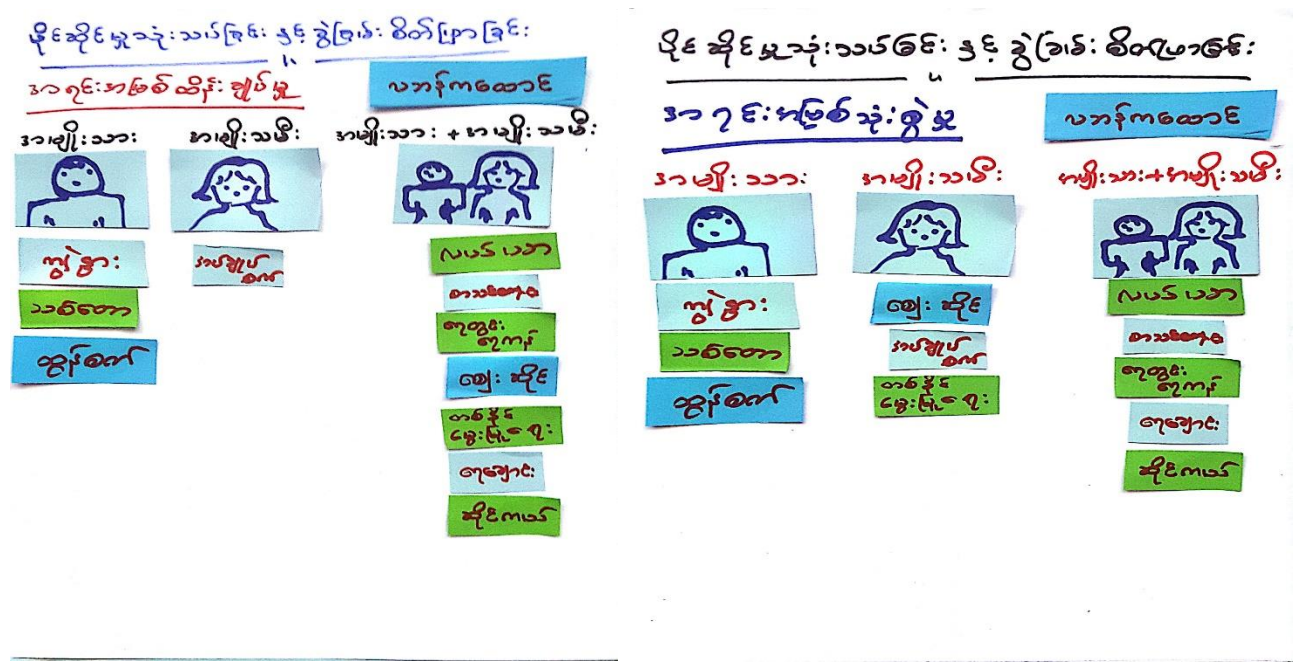 ပိုင်ဆိုင်မှုသုံးသပ်ခြင်း နှင့် ခွဲခြမ်း စိတ်ဖြာခြင်း
အရင်းအမြစ်ထိန်းချုပ်မှု
လဘန်ကထောင်
အမျိုးသား
အမျိုးသမီး
အမျိုးသား + အမျိုးသမီး
ကျွဲနွား
သစ်တော
ထွန်စက်
အပ်ချုပ်
စက်
လယ်ယာ
စာသင်ကျောင်း
ရေတွင်း
ရေကန်
ဈေးဆိုင်
တစ်နိုင်
မွေးမြူရေး
ရေချောင်း
ဆိုင်ကယ်
ပိုင်ဆိုင်မှုသုံးသပ်ခြင်း နှင့် ခွဲခြမ်း စိတ်ဖြာခြင်း
အရင်းအမြစ်သုံးစွဲမှု
လဘန်ကထောင်
အမျိုးသား
အမျိုးသမီး
အမျိုးသား+အမျိုးသမီး
ကျွဲနွား
သစ်တော
ထွန်စက်
ဈေးဆိုင်
အပ်ချုပ်
စက်
တစ်နိုင်
မွေးမြူရေး
လယ်ယာ
စာသင်ကျောင်း
ရေတွင်း
ရေကန်
ရေချောင်း
ဆိုင်ကယ်